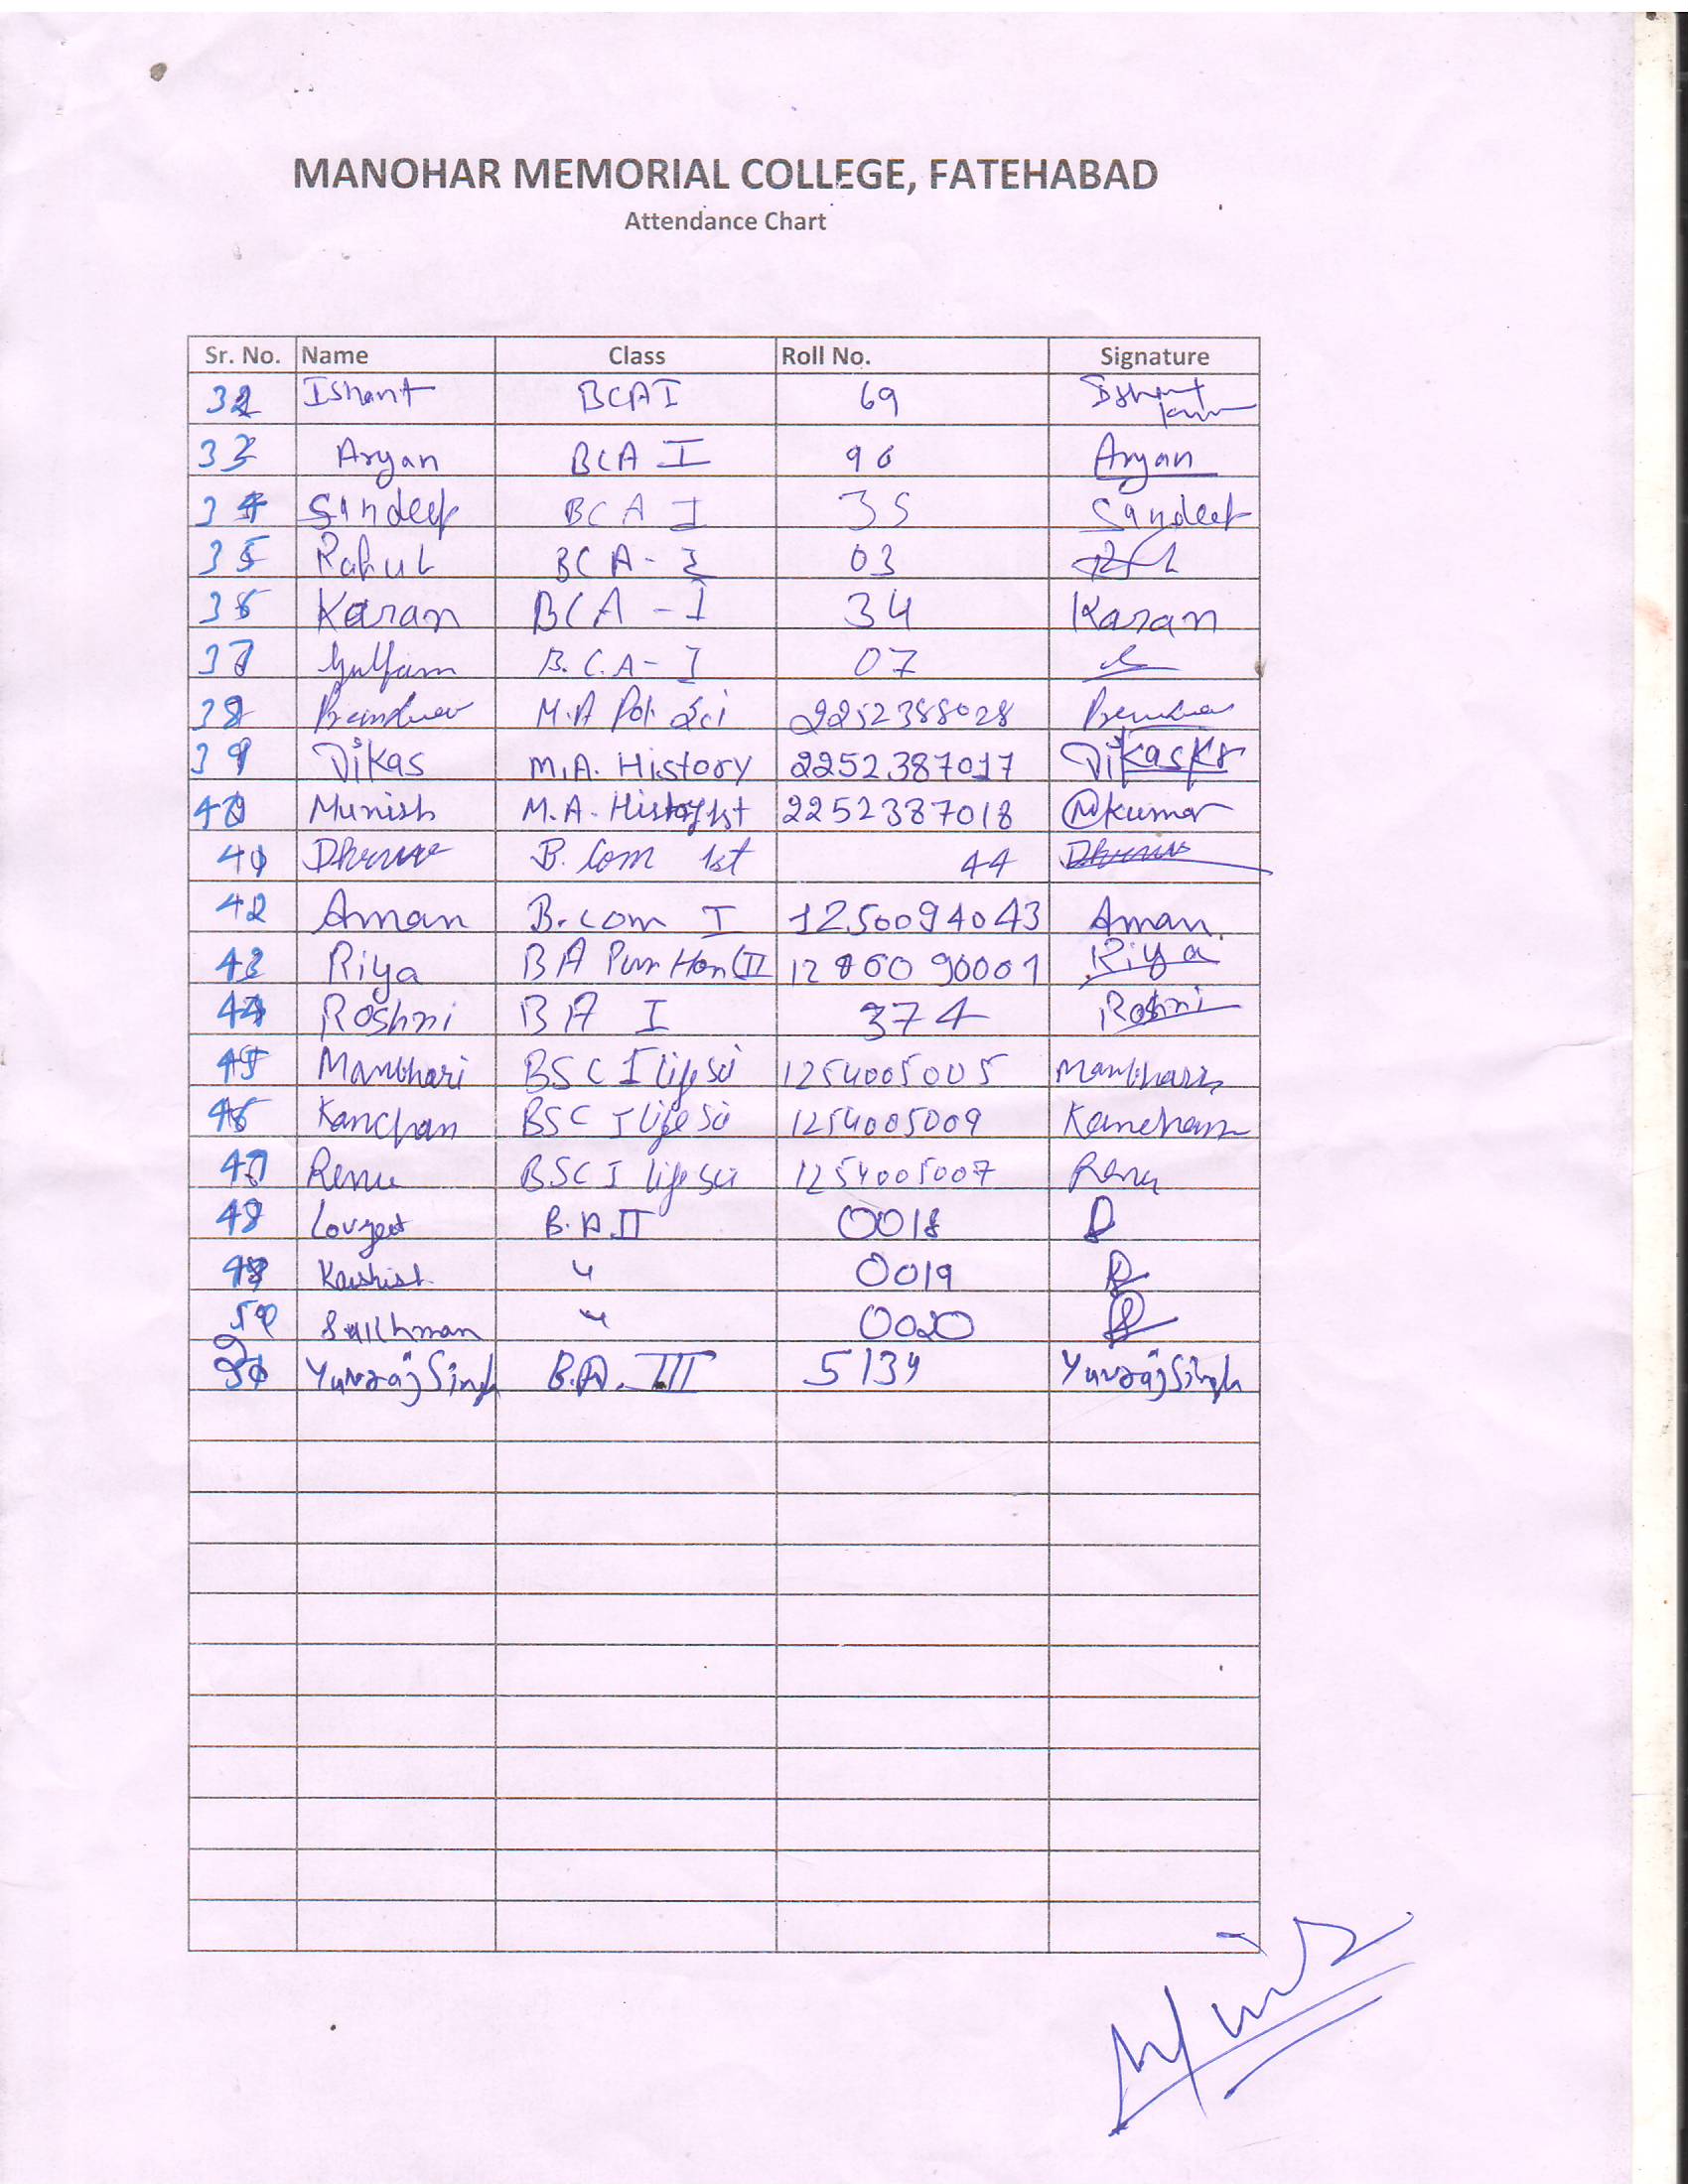 MANOHAR MEMORIAL COLLEGE, FATEHABAD
Attendance Chart
Sr. No. Name Class Roll No. Signature
32 Ishant BCA I 69 Ishant
33 Aryan BCA I 96 Aryan
34 Sandeep BCA I 35 Sandeep
35 Rahul BCA - I 03
36 Karan BCA - I 34 Karan
37 Gulfam B.C.A - I 07
38 M.A Pol. Sci 2252388028
39 Vikas M.A. History 2252387017 Vikas Kr
40 Munish M.A. History 1st 2252387018 M kumar
41 Dhruv B. Com 1st 44 Dhruv
42 Aman B.com I 1250094043 Aman
43 Riya BA Pun Hon(II 12860 90001 Riya
44 Roshni BA I 374 Roshni
45 Manbhari BSC I life sci 1254005005 Manbhari
46 Kanchan BSC I life sci 1254005009 Kanchan
47 Renu BSC I life sci 1254005007 Renu
48 Lovjeet B.A II 0018
49 Kashish " 0019
50 Sukhman " 0020
51 Yuvraj Singh B.A. III 5134 Yuvraj Singh